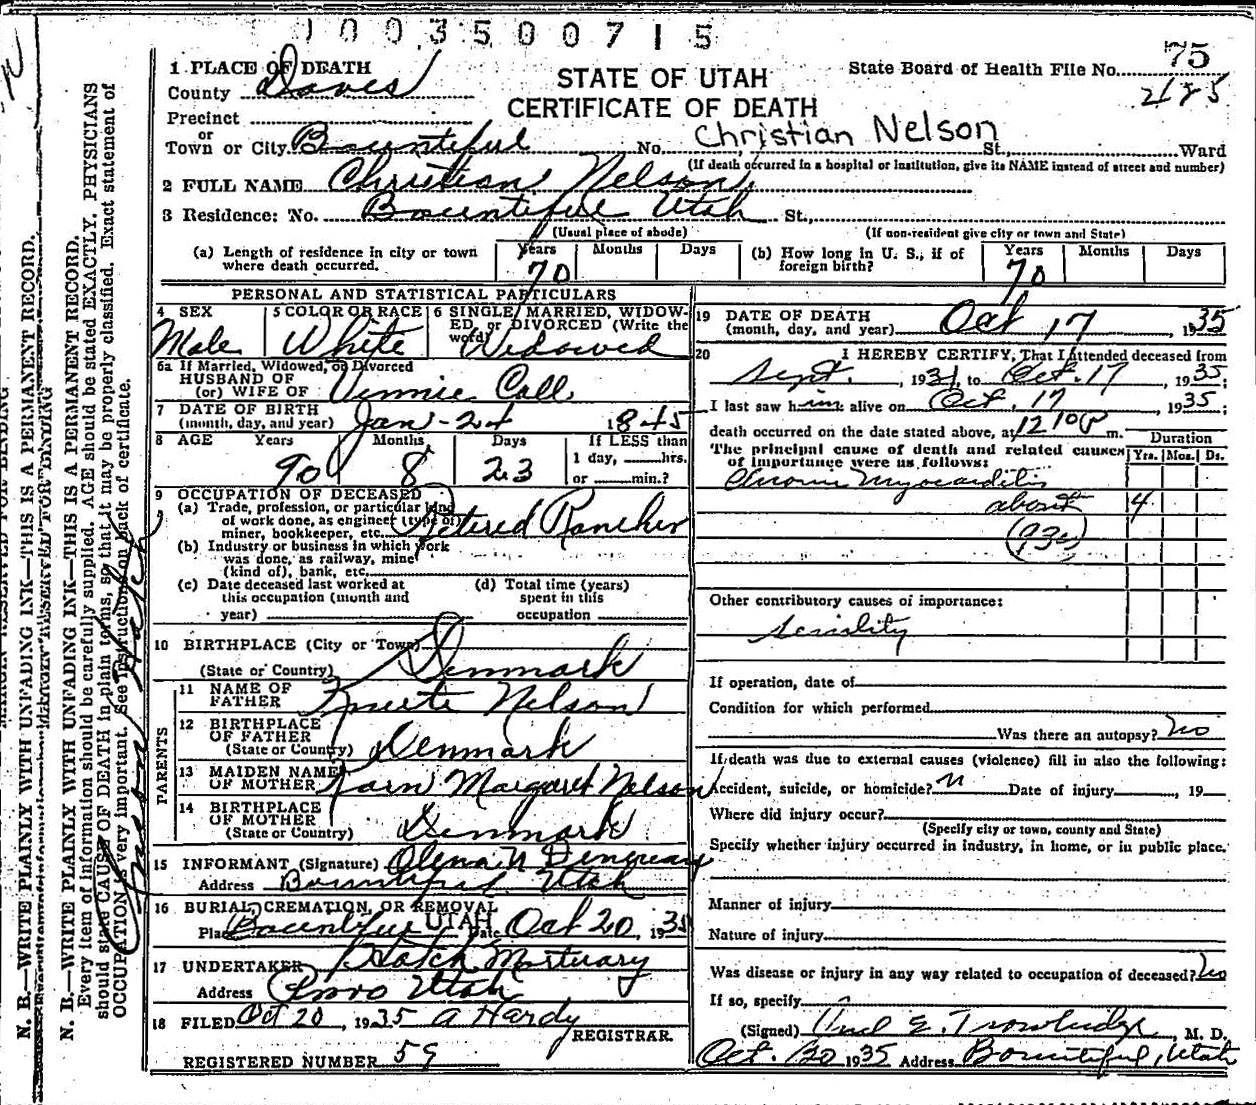 1 0 0 3 5 0 0 7 1 5
75
1 PLACE OF DEATH
STATE OF UTAH
State Board of Health File No.
County Davis
CERTIFICATE OF DEATH
Precinct
or
Town or City Bountiful No. Christian Nelson St., Ward
(If death occurred in a hospital or institution, give its NAME instead of street and number)
2 FULL NAME Christian Nelson
3 Residence: No. Bountiful Utah St.,
(Usual place of abode) (If non-resident give city or town and State)
(a) Length of residence in city or town where death occurred. Years 70 Months Days
(b) How long in U. S., if of foreign birth? Years 70 Months Days
PERSONAL AND STATISTICAL PARTICULARS
4 SEX Male
5 COLOR OR RACE White
6 SINGLE, MARRIED, WIDOWED, or DIVORCED (Write the word) Widowed
6a If Married, Widowed, or Divorced
HUSBAND OF
(or) WIFE OF Vennie Call
7 DATE OF BIRTH
(month, day, and year) Jan - 24 1845
8 AGE Years 90 Months 8 Days 23
If LESS than
1 day, hrs.
or min.?
9 OCCUPATION OF DECEASED
(a) Trade, profession, or particular kind
of work done, as engineer (type of)
miner, bookkeeper, etc. Retired Rancher
(b) Industry or business in which work
was done, as railway, mine
(kind of), bank, etc.
(c) Date deceased last worked at
this occupation (month and
year)
(d) Total time (years)
spent in this
occupation
10 BIRTHPLACE (City or Town)
(State or Country) Denmark
PARENTS
11 NAME OF
FATHER Nelson
12 BIRTHPLACE
OF FATHER
(State or Country) Denmark
13 MAIDEN NAME
OF MOTHER Karn Margaret Nelson
14 BIRTHPLACE
OF MOTHER
(State or Country) Denmark
15 INFORMANT (Signature) Olena N
Address Bountiful Utah
16 BURIAL, CREMATION, OR REMOVAL
Place Bountiful UTAH Date Oct 20, 1935
17 UNDERTAKER Hatch Mortuary
Address Provo Utah
18 FILED Oct 20, 1935 A Hardy
REGISTRAR.
REGISTERED NUMBER 59
19 DATE OF DEATH
(month, day, and year) Oct 17, 1935
20 I HEREBY CERTIFY, That I attended deceased from
Sept., 1931, to Oct. 17, 1935;
I last saw him alive on Oct. 17, 1935;
death occurred on the date stated above, at 1210 P m.
The principal cause of death and related causes
of importance were as follows:
Duration
Yrs. Mos. Ds.
Chronic Myocarditis
about 4
(93c)
Other contributory causes of importance:
Senility
If operation, date of
Condition for which performed
Was there an autopsy? No
If death was due to external causes (violence) fill in also the following:
Accident, suicide, or homicide? Date of injury, 19
Where did injury occur?
(Specify city or town, county and State)
Specify whether injury occurred in industry, in home, or in public place.
Manner of injury
Nature of injury
Was disease or injury in any way related to occupation of deceased? No
If so, specify
(Signed) E. Trowbridge, M. D.
Oct. 20 1935 Address Bountiful, Utah
N. B.—WRITE PLAINLY WITH UNFADING INK—THIS IS A PERMANENT RECORD.
N. B.—WRITE PLAINLY WITH UNFADING INK—THIS IS A PERMANENT RECORD.
Every item of information should be carefully supplied. AGE should be stated EXACTLY. PHYSICIANS
should state CAUSE OF DEATH in plain terms, so that it may be properly classified. Exact statement of
OCCUPATION is very important. See instructions on back of certificate.